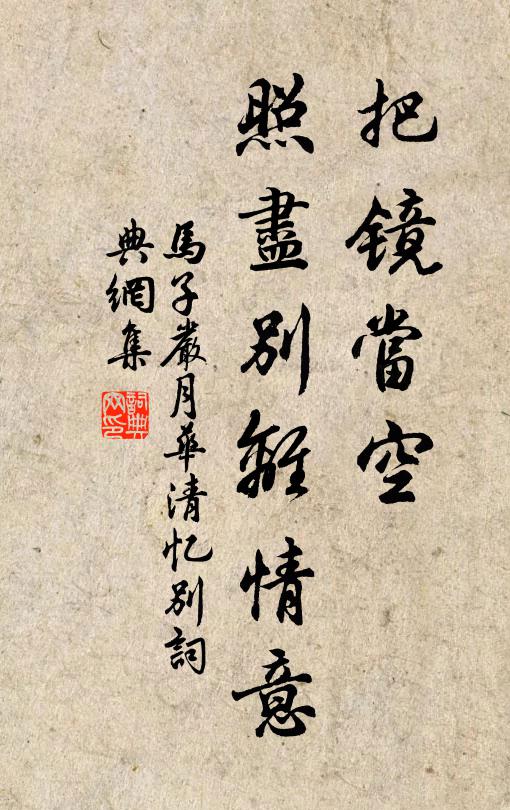 把镜當空
照盡別離情意
馬子嚴月華清忆別詞
典網集
詞典網印